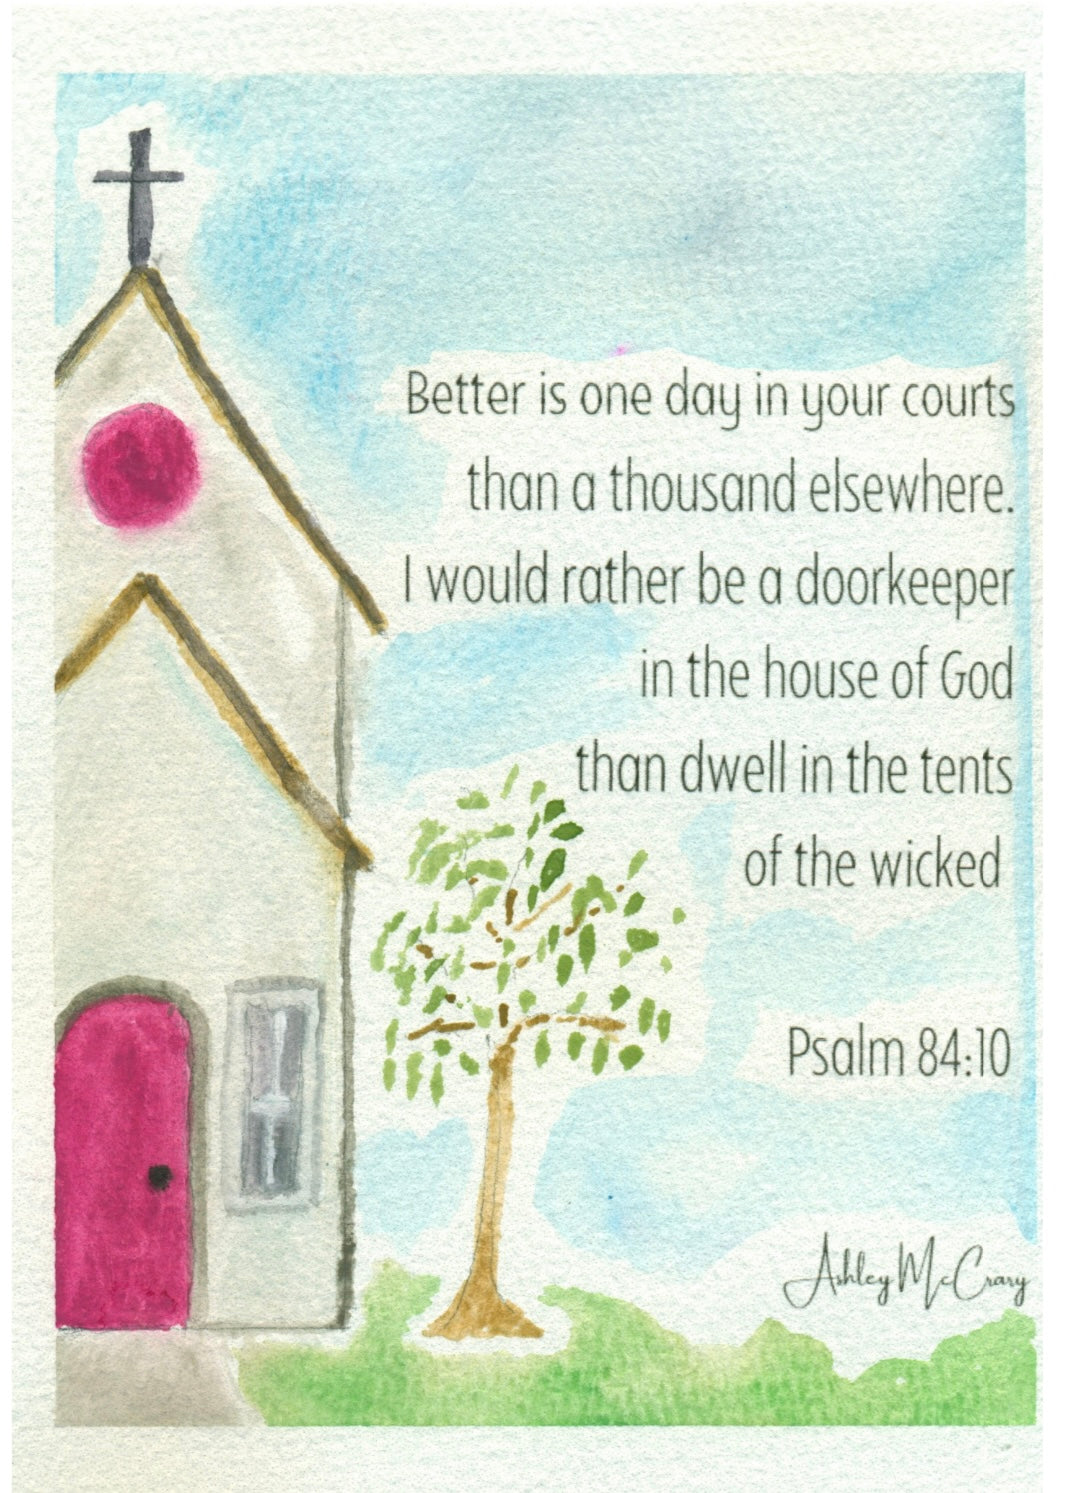 Better is one day in your courts
than a thousand elsewhere.
I would rather be a doorkeeper
in the house of God
than dwell in the tents
of the wicked
Psalm 84:10
Ashley McCrary